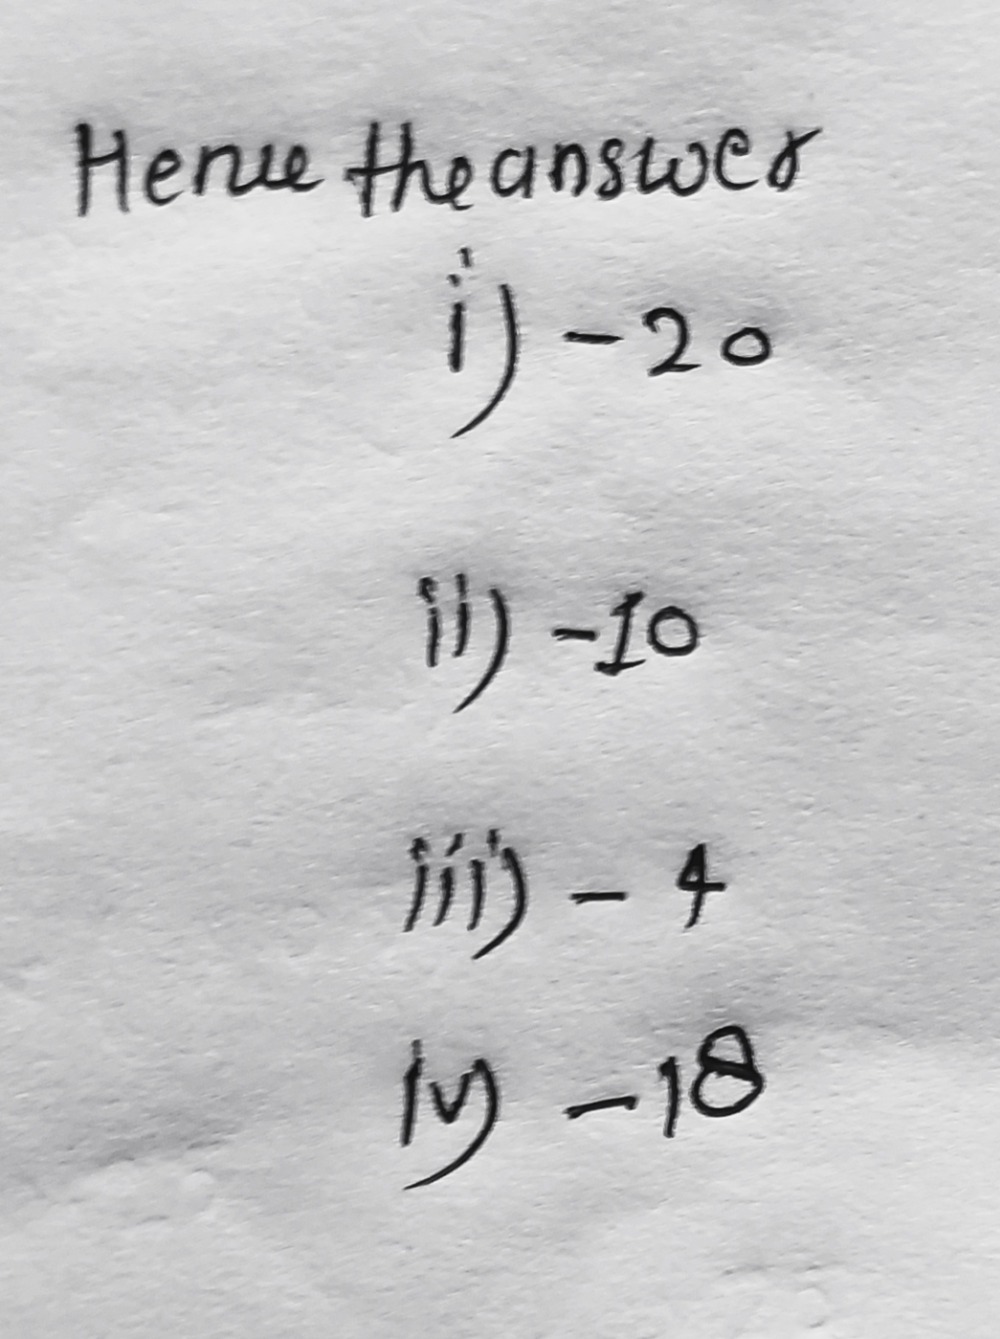 Hence the answer
i) - 20
ii) - 10
iii) - 4
iv) - 18